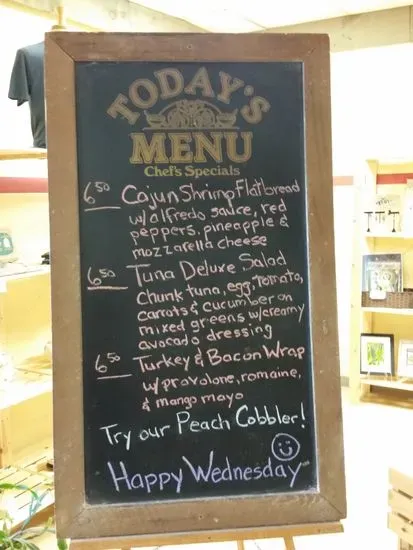 TODAY'S
MENU
Chef's Specials
6.50 Cajun Shrimp Flatbread
w/alfredo sauce, red
peppers, pineapple &
mozzarella cheese
6.50 Tuna Deluxe Salad
Chunk tuna, egg, tomato,
carrots & cucumber on
mixed greens w/creamy
avocado dressing
6.50 Turkey & Bacon Wrap
w/provolone, romaine,
& mango mayo
Try our Peach Cobbler!
Happy Wednesday